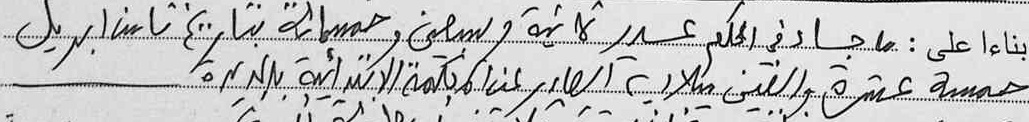 بناءا على : ما جاء في الحكم عدد ثلاثة وسبعين وخمسمائة بتاريخ ثامن ابريل
خمسة عشرة والفين ميلادي الصادر عن المحكمة الابتدائية